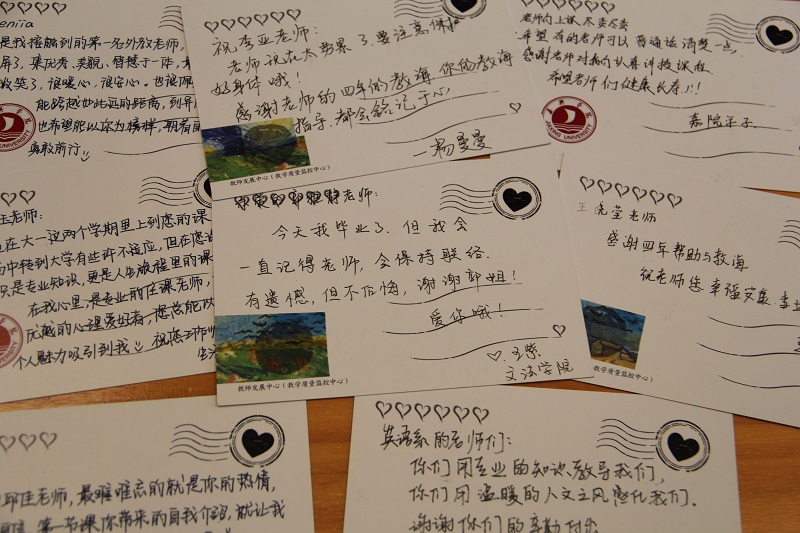 eniia
是我接触到的第一名外教老师,
能跨越如此远的距离,到
也希望能以你为榜样,朝着
勇敢前行
祝李亚老师:
老师现在太劳累了,要注意保
好身体哦!
感谢老师的四年的教诲,你的教诲
指导,都会铭记于心
—杨曼曼
教师发展中心(教学质量监控中心)
老师向上课,尽责尽责
希望有的老师可以普通话清楚一点,
感谢老师对我们认真讲授课程.
希望老师们健康长寿!!!
UNIVERSITY
老师:
在大一这两个学期里上到您的课
高中转到大学有些许不适应,但在您
只是专业知识,更是人生旅程里的课
在我心里,是专业的任课老师,
优越的心理爱好者,
个人魅力吸引到我
老师:
今天我毕业了.但我会
一直记得老师,会保持联络.
有遗憾,但不后悔,谢谢郭姐!
爱你哦!
文法学院
教师发展中心(教学质量监控中心)
王晓莹老师
感谢四年帮助与教诲
祝老师您幸福安康
教师发展中心(教学质量监控中心)
邱佳老师,最难忘的就是你的热情,
第一节课你带来的自我介绍,就让我
英语系的老师们:
你们用专业的知识教导我们,
你们用温暖的人文之风感化我们.
谢谢你们的辛勤付出